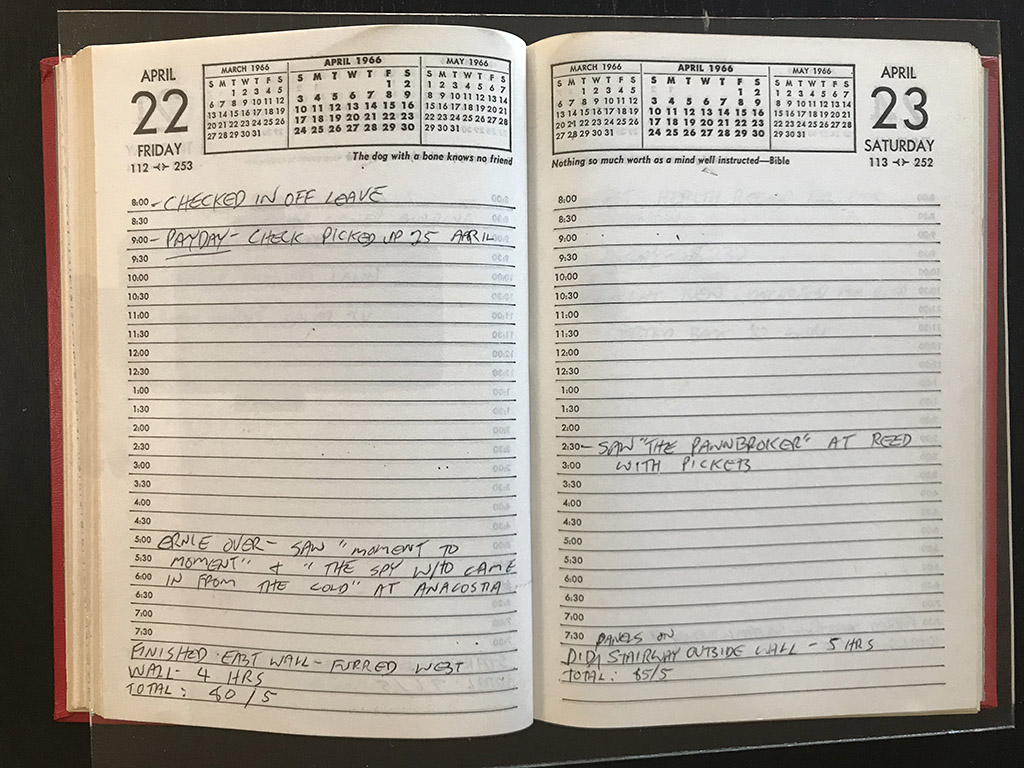 APRIL
22
FRIDAY
112 253
MARCH 1966
S M T W T F S
1 2 3 4 5
6 7 8 9 10 11 12
13 14 15 16 17 18 19
20 21 22 23 24 25 26
27 28 29 30 31
APRIL 1966
S M T W T F S
1 2
3 4 5 6 7 8 9
10 11 12 13 14 15 16
17 18 19 20 21 22 23
24 25 26 27 28 29 30
MAY 1966
S M T W T F S
1 2 3 4 5 6 7
8 9 10 11 12 13 14
15 16 17 18 19 20 21
22 23 24 25 26 27 28
29 30 31
The dog with a bone knows no friend
8:00 – CHECKED IN OFF LEAVE
8:30
9:00 – PAYDAY – CHECK PICKED UP 25 APRIL
9:30
10:00
10:30
11:00
11:30
12:00
12:30
1:00
1:30
2:00
2:30
3:00
3:30
4:00
4:30
5:00 ERNIE OVER – SAW "MOMENT TO
5:30 MOMENT" & "THE SPY WHO CAME
6:00 IN FROM THE COLD" AT ANACOSTIA
6:30
7:00
7:30
FINISHED EAST WALL – FURRED WEST
WALL – 4 HRS
TOTAL: 80/5
MARCH 1966
S M T W T F S
1 2 3 4 5
6 7 8 9 10 11 12
13 14 15 16 17 18 19
20 21 22 23 24 25 26
27 28 29 30 31
APRIL 1966
S M T W T F S
1 2
3 4 5 6 7 8 9
10 11 12 13 14 15 16
17 18 19 20 21 22 23
24 25 26 27 28 29 30
MAY 1966
S M T W T F S
1 2 3 4 5 6 7
8 9 10 11 12 13 14
15 16 17 18 19 20 21
22 23 24 25 26 27 28
29 30 31
APRIL
23
SATURDAY
113 252
Nothing so much worth as a mind well instructed—Bible
8:00
8:30
9:00
9:30
10:00
10:30
11:00
11:30
12:00
12:30
1:00
1:30
2:00
2:30 – SAW "THE PAWNBROKER" AT REED
3:00 WITH PICKETS
3:30
4:00
4:30
5:00
5:30
6:00
6:30
7:00
7:30 PANELS ON
DID STAIRWAY OUTSIDE WALL – 5 HRS
TOTAL: 85/5